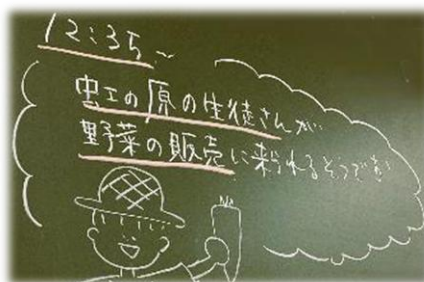 12:35~
虹の原の生徒さんが、
野菜の販売に来られるそうです